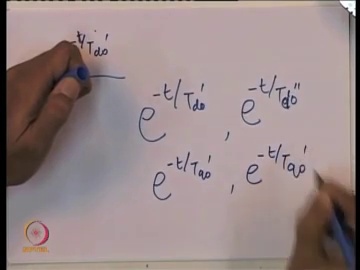 -t/T'do
e^{-t/T'do}, e^{-t/T''do}
e^{-t/T'qo}, e^{-t/T'qo}